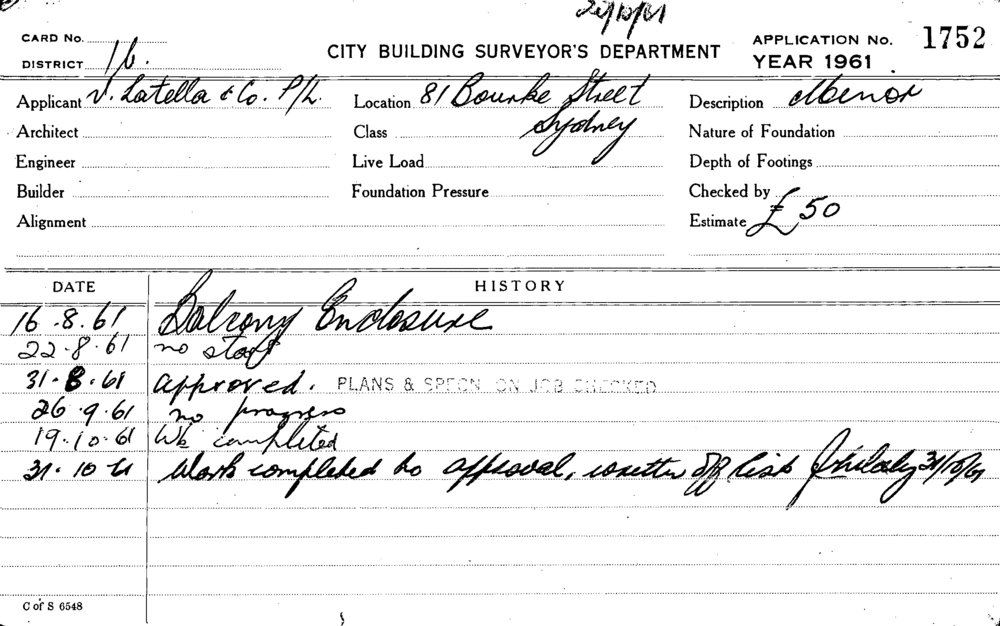 CARD No.
DISTRICT 16.
CITY BUILDING SURVEYOR'S DEPARTMENT
APPLICATION No. 1752
YEAR 1961
Applicant V. Latella & Co. P/L.
Location 81 Bourke Street
Sydney
Description Minor
Architect
Class
Nature of Foundation
Engineer
Live Load
Depth of Footings
Builder
Foundation Pressure
Checked by
Alignment
Estimate £50
DATE HISTORY
16.8.61 Balcony Enclosure
22.8.61 no start
31.8.61 approved. PLANS & SPECN ON JOB CHECKED
26.9.61 no progress
19.10.61 Wk completed
31.10.61 Work completed to approval, written off list 31/10/61
C of S 6548